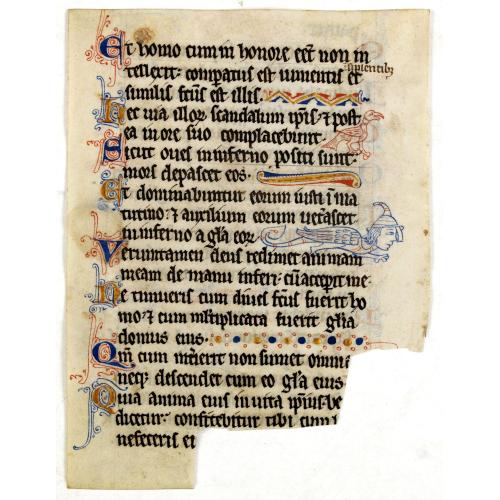 Et homo cum in honore eēt non in
tellexit: comparatus est iumentis
insipientibꝫ et
similis fc̄us est illis.
Hec uia illoꝝ scandalum ipīs: ⁊ post
ea in ore suo complacebunt.
Sicut oues in inferno positi sunt:
mors depascet eos.
Et dominabuntur eorum iusti ī ma
tutino: ⁊ auxilium eorum ueterascet
in inferno a gl̄a eoꝝ
Verumtamen deus redimet animam
meam de manu inferi: cū acceperit me
Ne timueris cum diues fc̄us fuerit ho
mo: ⁊ cum multiplicata fuerit gl̄ia
domus eius.
Qm̄ cum interierit non sumet omnia
neqꝫ descendet cum eo gl̄a eius
Quia anima eius in uita ipsius be
dicetur: confitebitur tibi cum
nefeceris ei